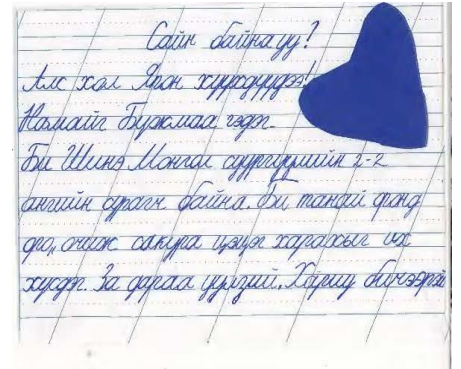 Сайн байна уу?
Алс хол Япон хүүхдүүдээ!
Намайг Бужмаа гэдэг.
Би Шинэ Монгол сургуулийн 2-2
ангийн сурагч байна. Би танай
очиж сакура цэцэг харахыг их
хүсдэг. За дараа уулзъя. Хариу бичээрэй